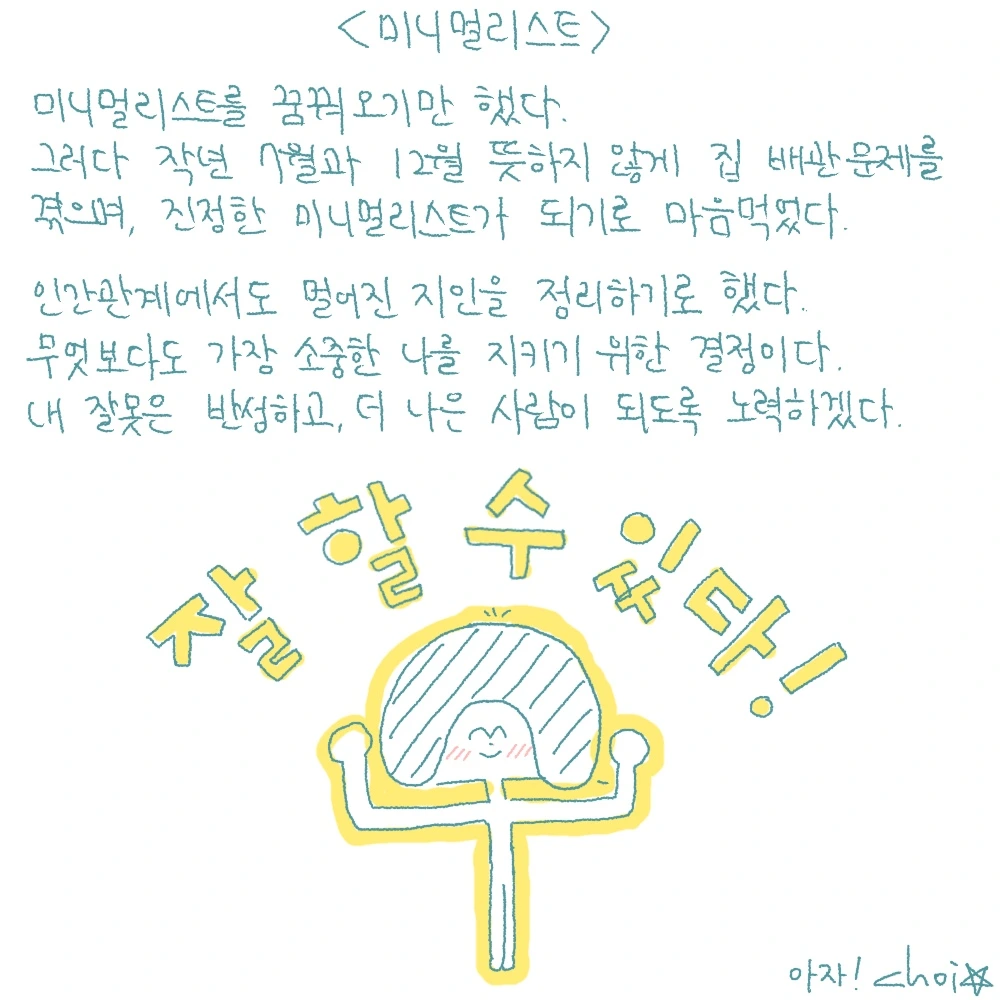 <미니멀리스트>
미니멀리스트를 꿈꿔오기만 했다.
그러다 작년 7월과 12월 뜻하지 않게 집 배관문제를
겪으며, 진정한 미니멀리스트가 되기로 마음먹었다.
인간관계에서도 멀어진 지인을 정리하기로 했다.
무엇보다도 가장 소중한 나를 지키기 위한 결정이다.
내 잘못은 반성하고, 더 나은 사람이 되도록 노력하겠다.
잘 할 수 있다!
아자! choi☆